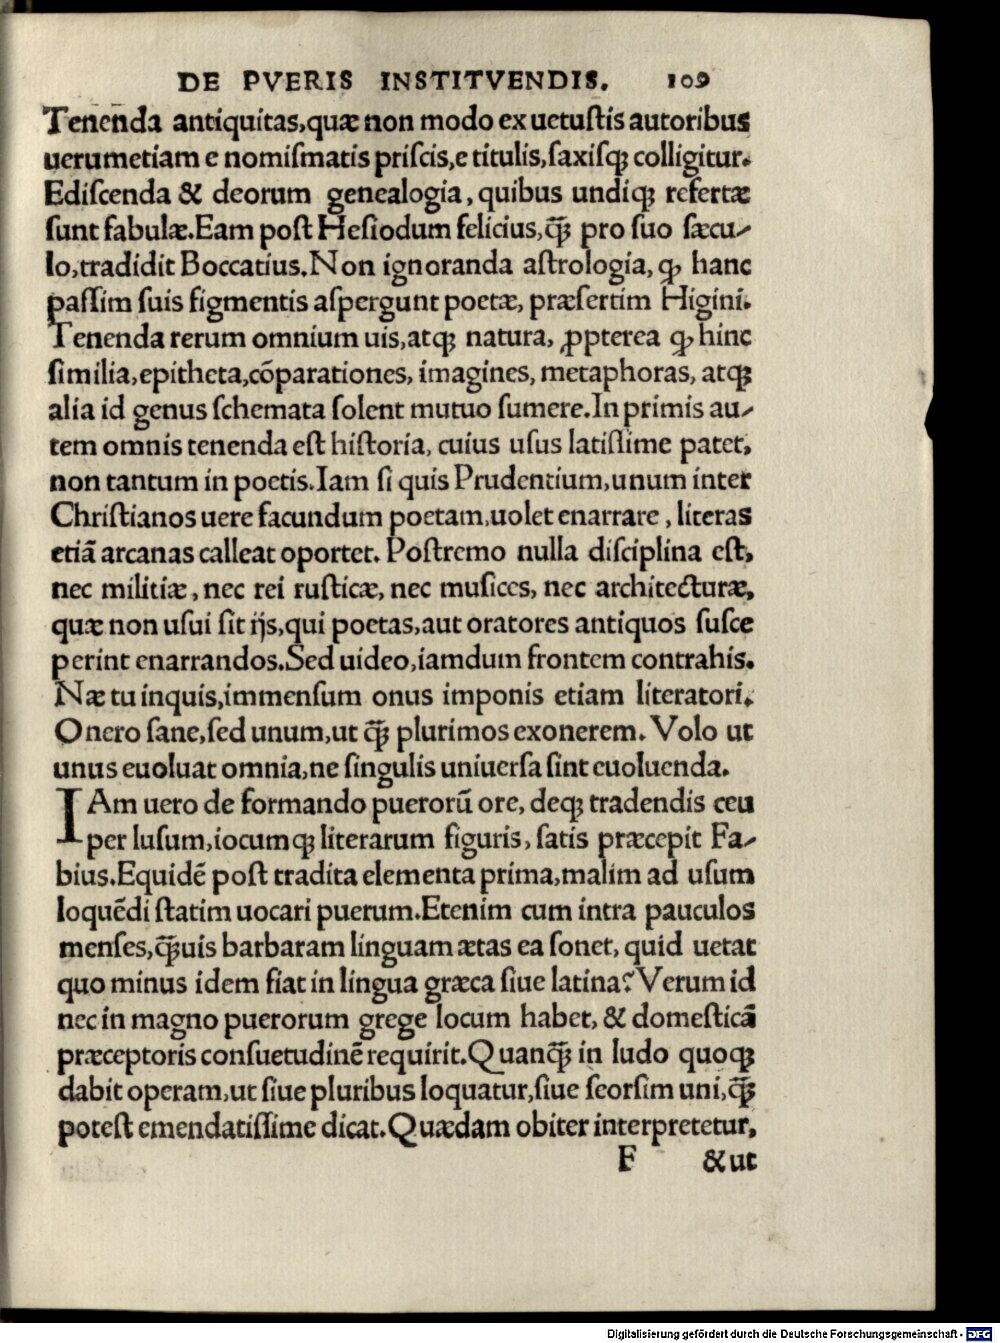 DE PVERIS INSTITVENDIS. 109
Tenenda antiquitas,quæ non modo ex uetuſtis autoribus
uerumetiam e nomiſmatis priſcis,e titulis,ſaxiſqꝫ colligitur.
Ediſcenda & deorum genealogia, quibus undiqꝫ refertæ
ſunt fabulæ.Eam poſt Heſiodum felicius,q̃ꝫ pro ſuo ſæcu⸗
lo,tradidit Boccatius.Non ignoranda aſtrologia, ꝙ hanc
paſſim ſuis figmentis aſpergunt poetæ, præſertim Higini.
Tenenda rerum omnium uis,atqꝫ natura, ꝓpterea ꝙ hinc
ſimilia,epitheta,cōparationes, imagines, metaphoras, atqꝫ
alia id genus ſchemata ſolent mutuo ſumere.In primis au⸗
tem omnis tenenda eſt hiſtoria, cuius uſus latiſſime patet,
non tantum in poetis.Iam ſi quis Prudentium,unum inter
Chriſtianos uere facundum poetam,uolet enarrare, literas
etiã arcanas calleat oportet. Poſtremo nulla diſciplina eſt,
nec militiæ, nec rei ruſticæ, nec muſices, nec architecturæ,
quæ non uſui ſit ijs,qui poetas,aut oratores antiquos ſuſce
perint enarrandos.Sed uideo,iamdum frontem contrahis.
Næ tu inquis,immenſum onus imponis etiam literatori.
Onero ſane,ſed unum,ut q̃ꝫ plurimos exonerem. Volo ut
unus euoluat omnia,ne ſingulis uniuerſa ſint euoluenda.
IAm uero de formando puerorū ore, deqꝫ tradendis ceu
per luſum,iocumqꝫ literarum figuris, ſatis præcepit Fa⸗
bius.Equidē poſt tradita elementa prima,malim ad uſum
loquēdi ſtatim uocari puerum.Etenim cum intra pauculos
menſes,q̃ꝫuis barbaram linguam ætas ea ſonet, quid uetat
quo minus idem fiat in lingua græca ſiue latina? Verum id
nec in magno puerorum grege locum habet, & domeſticã
præceptoris conſuetudinē requirit.Quanq̃ꝫ in ludo quoqꝫ
dabit operam,ut ſiue pluribus loquatur,ſiue ſeorſim uni,q̃ꝫ
poteſt emendatiſſime dicat.Quædam obiter interpretetur,
F &ut
Digitalisierung gefördert durch die Deutsche Forschungsgemeinschaft - DFG